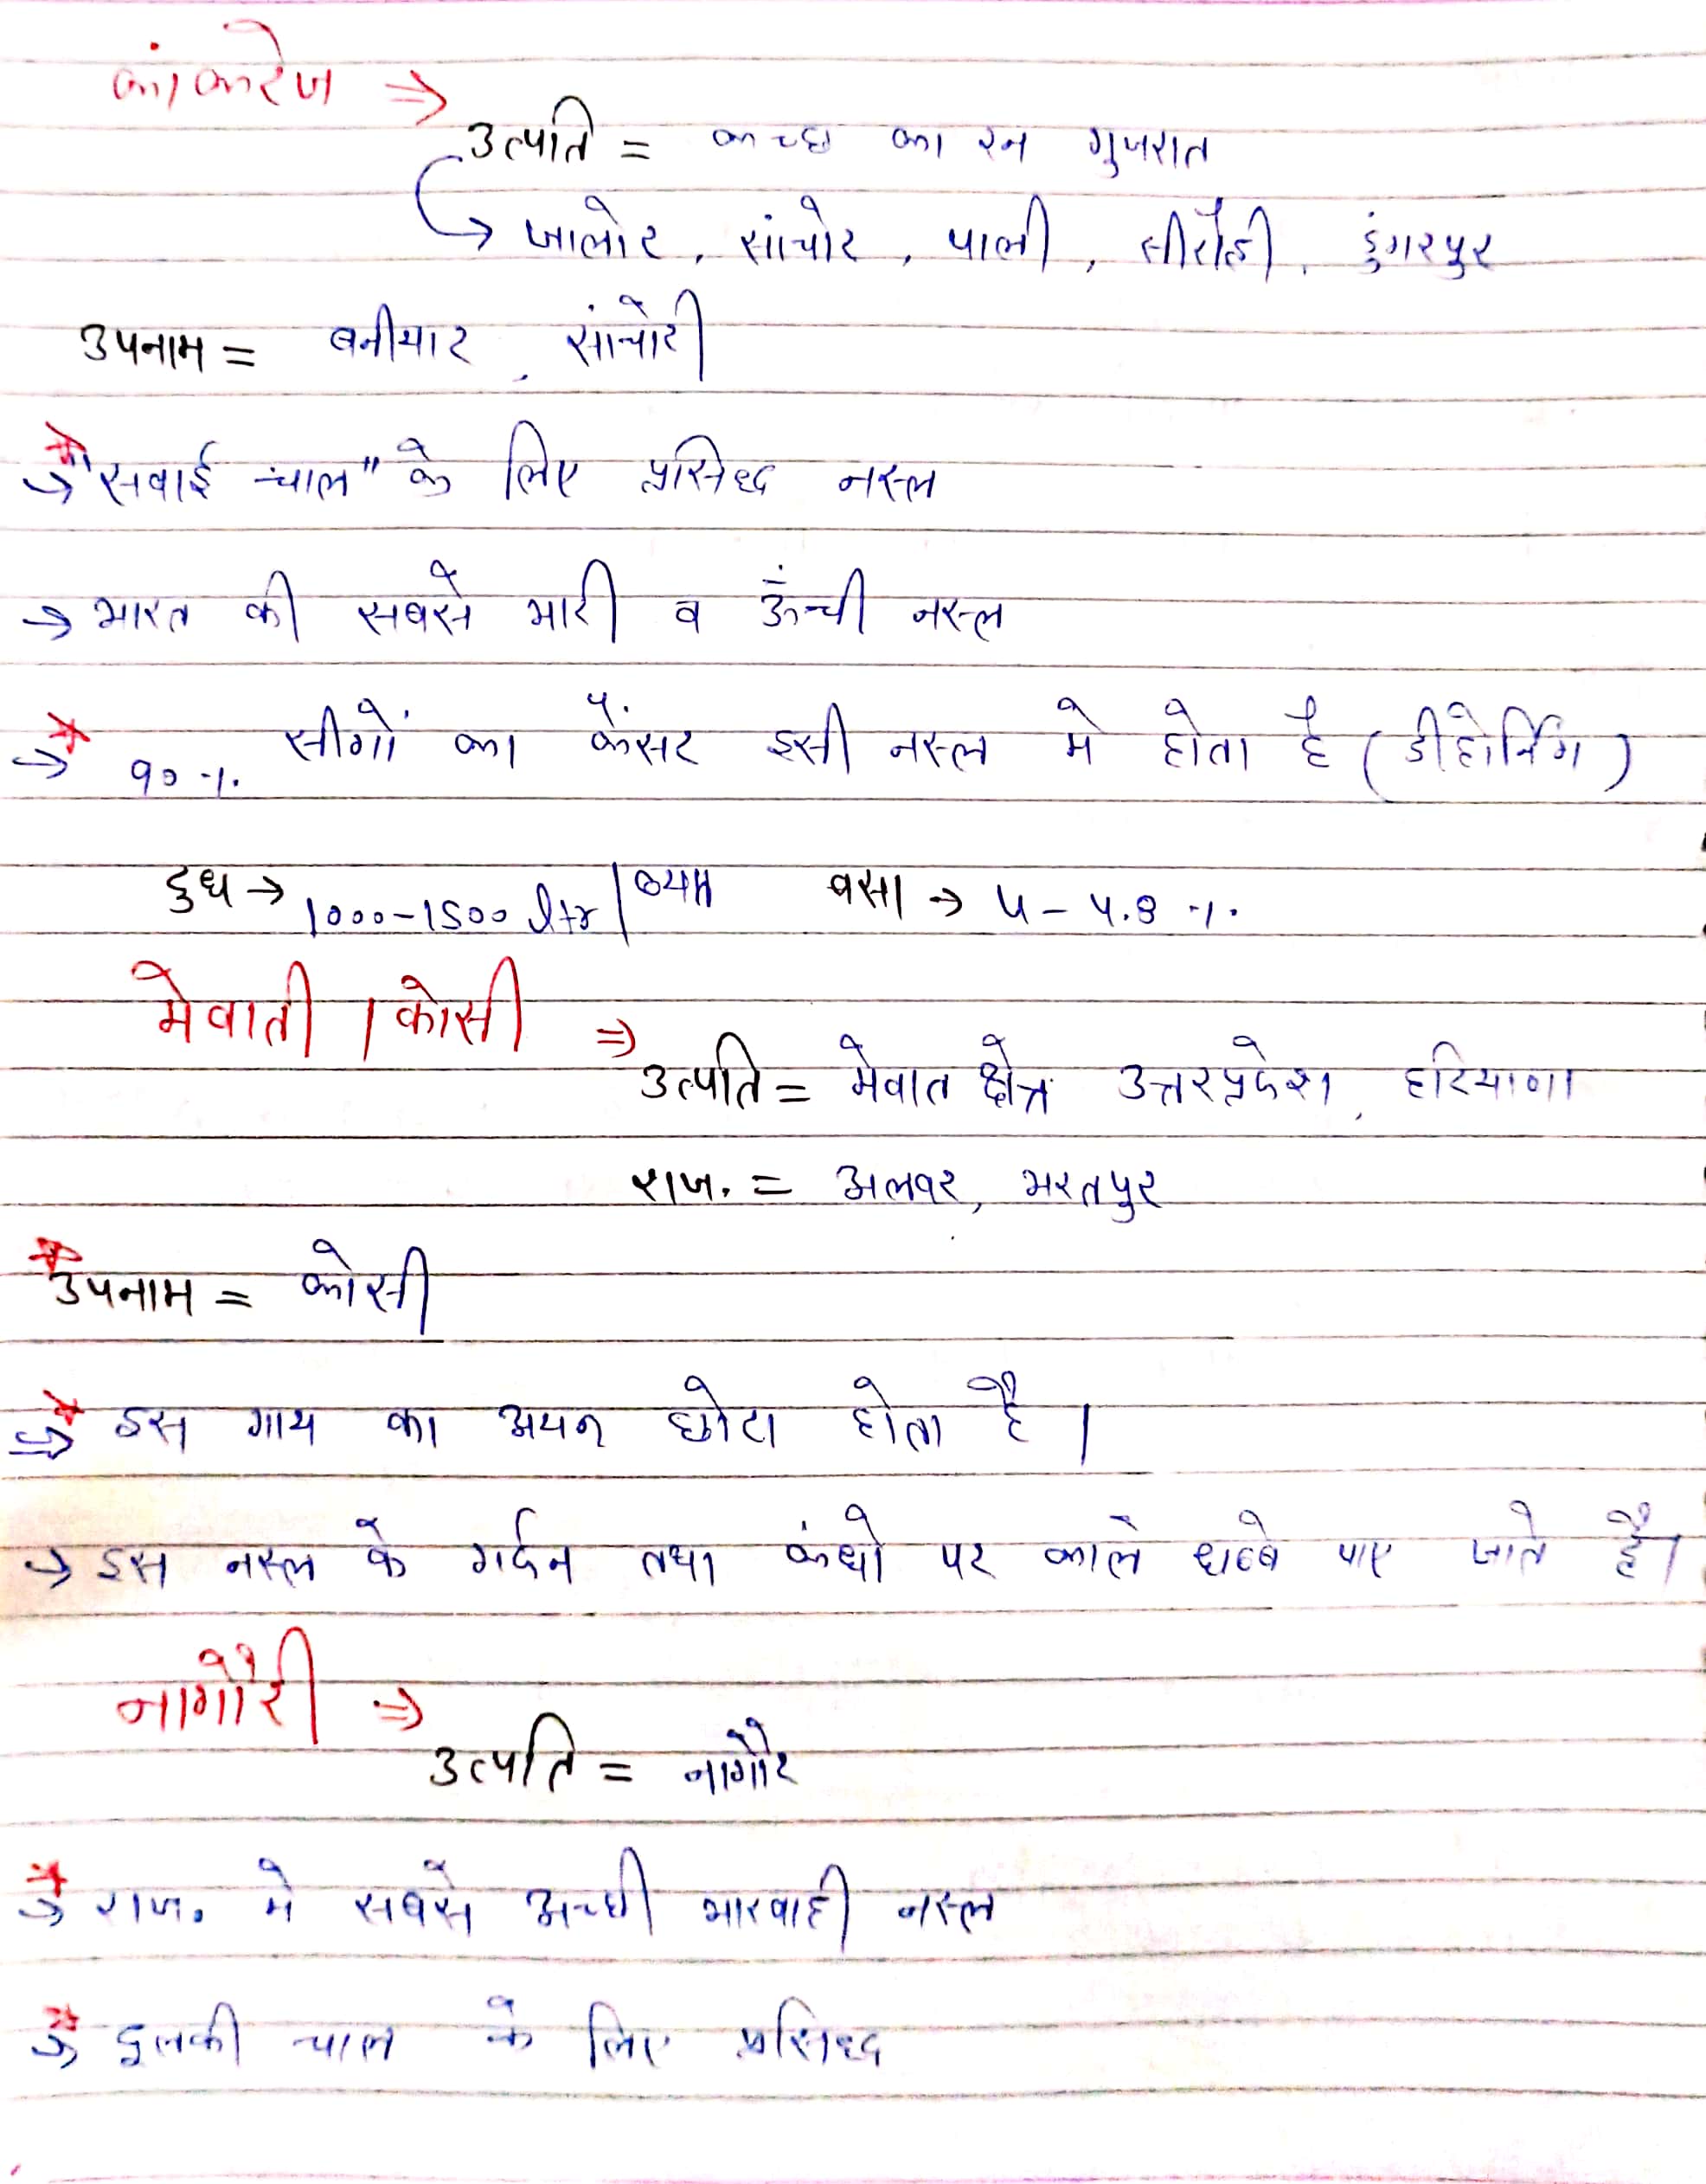 कांकरेज ⇒
उत्पति = कच्छ का रन गुजरात
→ जालोर, सांचोर, पाली, सीरोही, डुंगरपुर
उपनाम = बनीयार, सांचोरी
→ "सवाई चाल" के लिए प्रसिध्द नस्ल
→ भारत की सबसे भारी व ऊँची नस्ल
→ 90 %. सीगों का कैंसर इसी नस्ल मे होता है (डीहोर्निंग)
दुध → 1000-1500 ltr/ब्यात वसा → 4 - 4.8 %.
मेवाती / कोसी ⇒
उत्पति = मेवात क्षेत्र उत्तरप्रदेश, हरियाणा
राज. = अलवर, भरतपुर
उपनाम = कोसी
⇒ इस गाय का अयन छोटा होता है।
→ इस नस्ल के गर्दन तथा कंधो पर काले धब्बे पाए जाते है।
नागौरी ⇒
उत्पति = नागौर
→ राज. मे सबसे अच्छी भारवाही नस्ल
→ दुलकी चाल के लिए प्रसिध्द